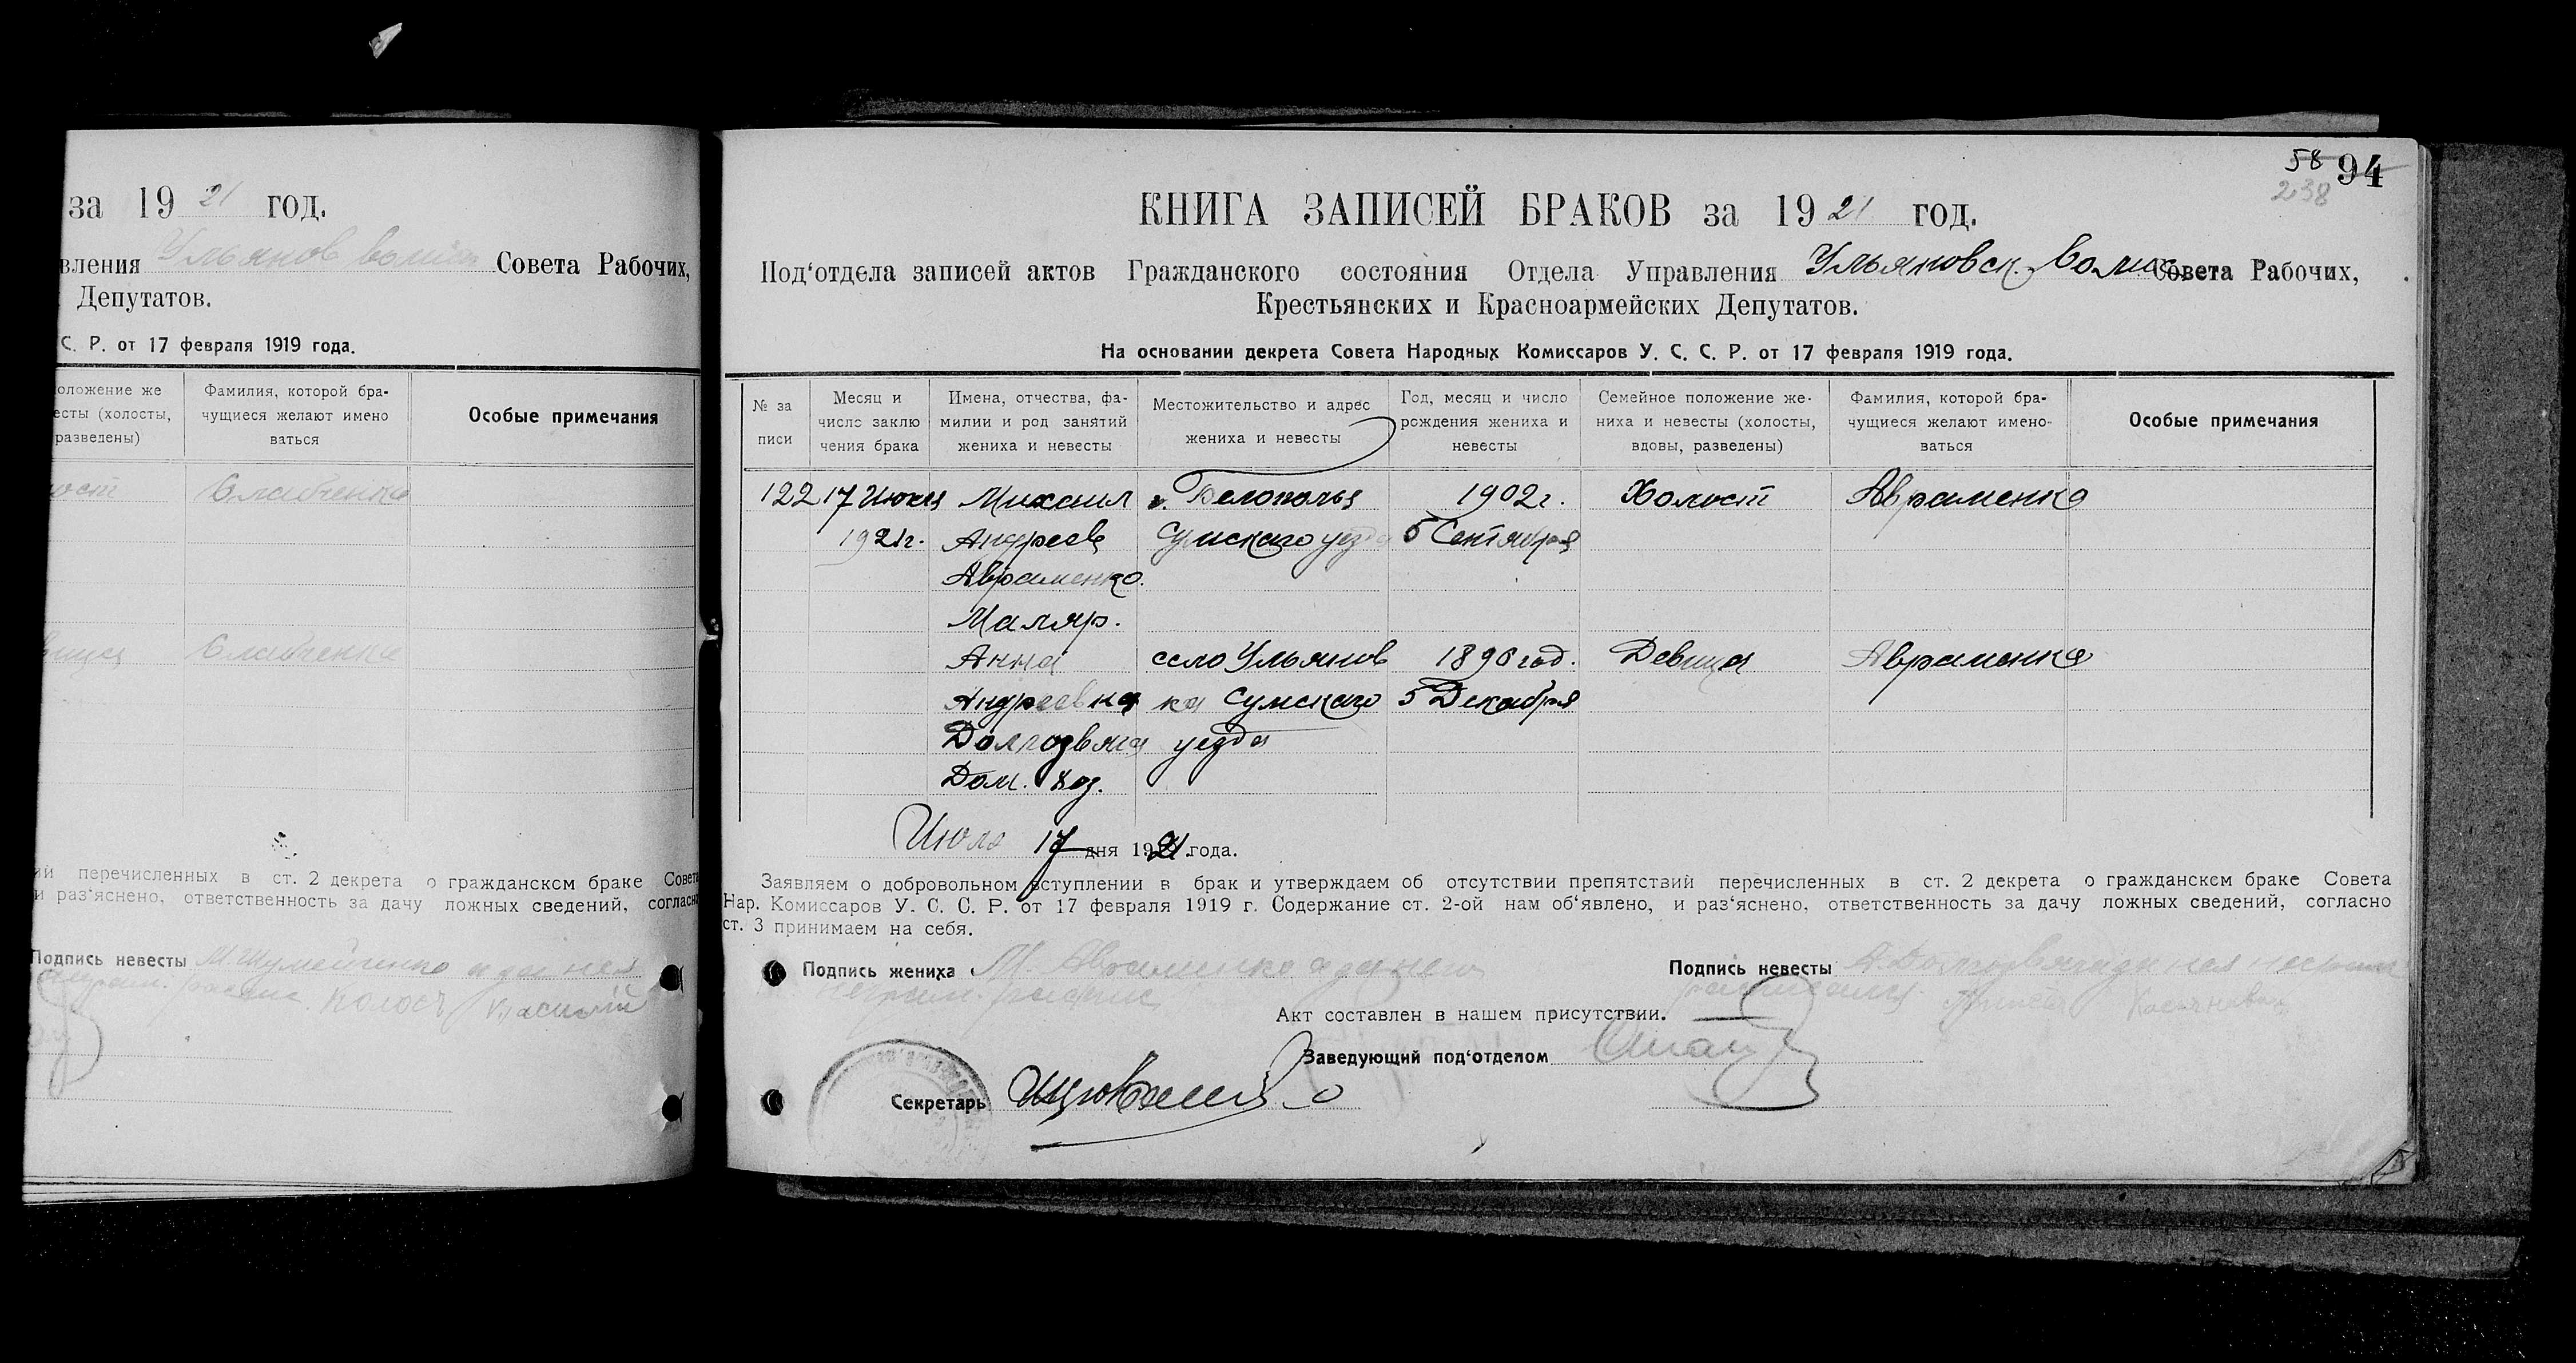 за 1921 год.
вления Ульянов Совета Рабочих,
Депутатов.
С. Р. от 17 февраля 1919 года.
оложение же
есты (холосты,
разведены)
Фамилия, которой бра-
чущиеся желают имено
ваться
Особые примечания
ост
вица
ий перечисленных в ст. 2 декрета о гражданском браке Совета
и раз‘яснено, ответственность за дачу ложных сведений, согласно
Подпись невесты М Шумейченко а за нея
неграм. распис. Колос Василий
58 94
238
КНИГА ЗАПИСЕЙ БРАКОВ за 1921 год.
Под‘отдела записей актов Гражданского состояния Отдела Управления Ульяновск. Волис Совета Рабочих,
Крестьянских и Красноармейских Депутатов.
На основании декрета Совета Народных Комиссаров У. С. С. Р. от 17 февраля 1919 года.
№ за
писи
Месяц и
число заклю
чения брака
Имена, отчества, фа-
милии и род занятий
жениха и невесты
Местожительство и адрес
жениха и невесты
Год, месяц и число
рождения жениха и
невесты
Семейное положение же-
ниха и невесты (холосты,
вдовы, разведены)
Фамилия, которой бра-
чущиеся желают имено-
ваться
Особые примечания
122 17 Июля Михаил г. Белополья 1902 г. Холост Авраменко
1921 г. Андреев Сумскаго уезда 5 Сентября
Авраменко.
Маляр.
Анна село Ульянов 1896 год. Девица Авраменко
Андреевна ка Сумскаго 5 Декабря
Долгодвяга уезда
Дом. хоз.
Июля 17 дня 1921 года.
Заявляем о добровольном вступлении в брак и утверждаем об отсутствии препятствий перечисленных в ст. 2 декрета о гражданском браке Совета
Нар. Комиссаров У. С. С. Р. от 17 февраля 1919 г. Содержание ст. 2-ой нам об‘явлено, и раз‘яснено, ответственность за дачу ложных сведений, согласно
ст. 3 принимаем на себя.
Подпись жениха М Авраменко а за него
неграм. распис
Подпись невесты А. Долгодвяга за нея неграм
расписался
Акт составлен в нашем присутствии.
Заведующий под‘отделом
Секретарь